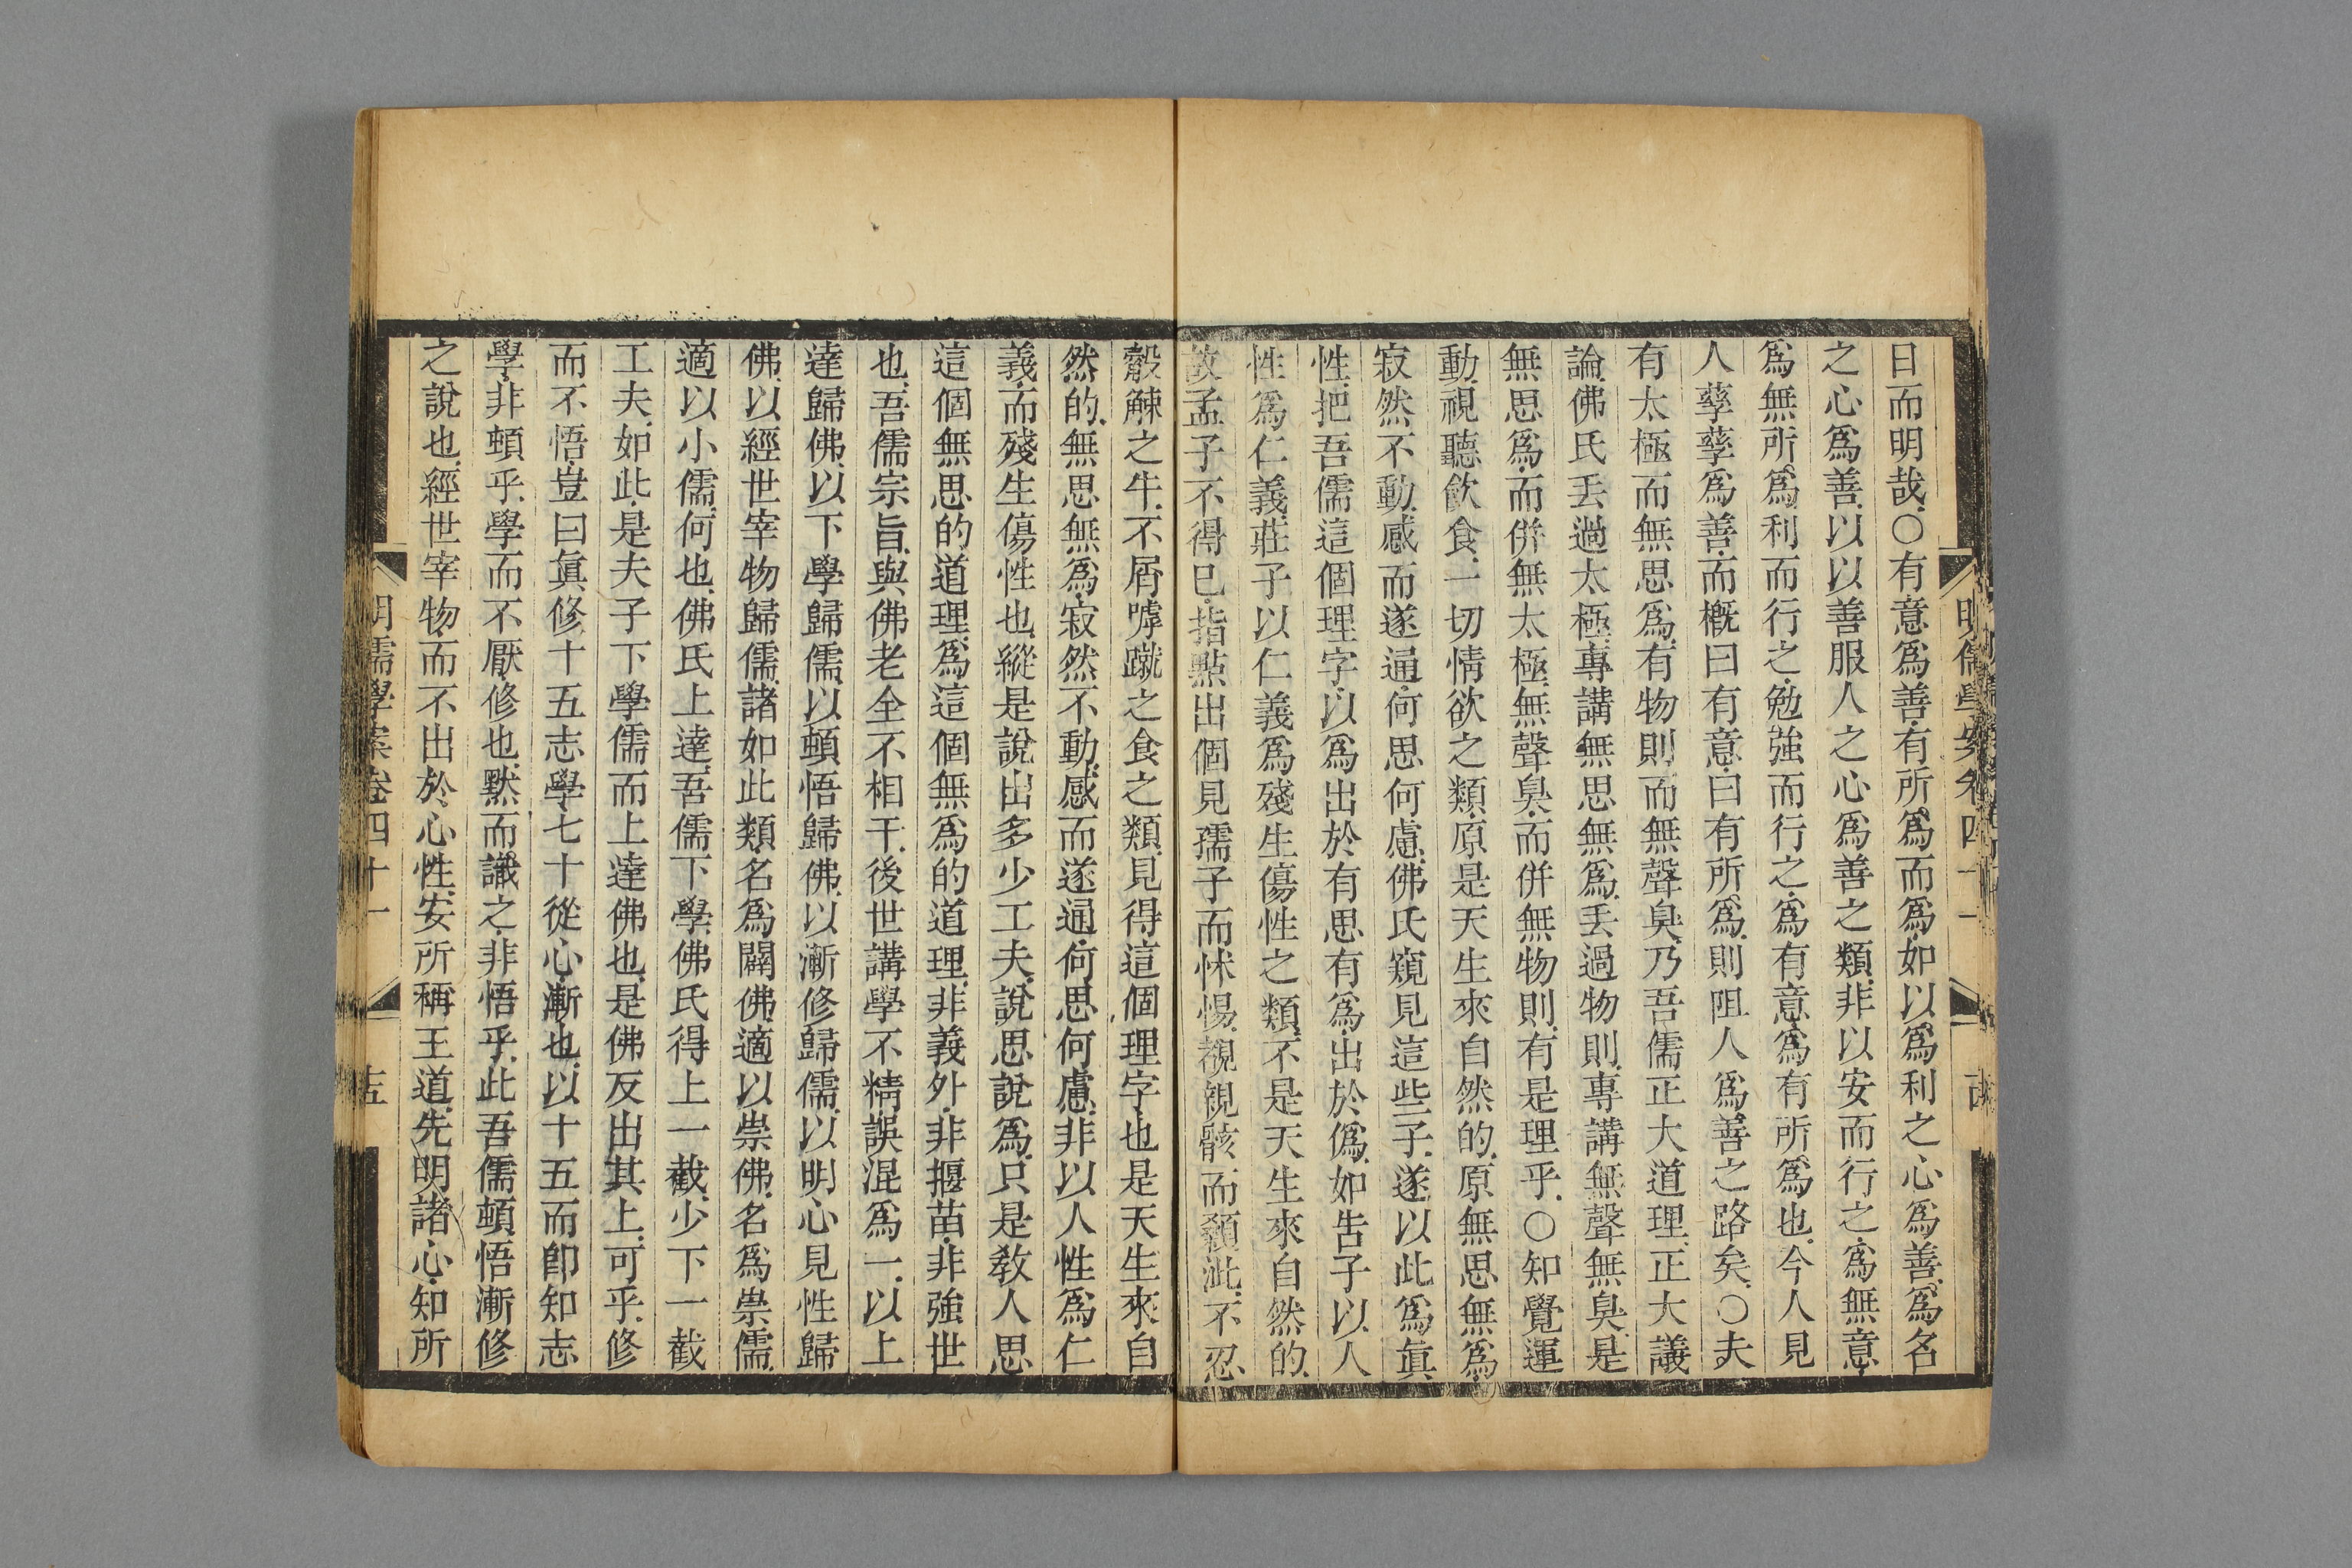 日而明哉○有意爲善有所爲而爲如以爲利之心爲善爲名
之心爲善以以善服人之心爲善之類非以安而行之爲無意
爲無所爲利而行之勉強而行之爲有意爲有所爲也今人見
人孳孳爲善而槪曰有意曰有所爲則阻人爲善之路矣○夫
有太極而無思爲有物則而無聲臭乃吾儒正大道理正大議
論佛氏丟過太極專講無思無爲丟過物則專講無聲無臭是
無思爲而併無太極無聲臭而併無物則有是理乎○知覺運
動視聽飮食一切情欲之類原是天生來自然的原無思無爲
寂然不動感而遂通何思何慮佛氏窺見這些子遂以此爲眞
性把吾儒這個理字以爲出於有思有爲出於僞如告子以人
性爲仁義莊子以仁義爲殘生傷性之類不是天生來自然的
故孟子不得已指點出個見孺子而怵惕覩親骸而顙泚不忍
觳觫之牛不屑嘑蹴之食之類見得這個理字也是天生來自
然的無思無爲寂然不動感而遂通何思何慮非以人性爲仁
義而殘生傷性也縱是說出多少工夫說思說爲只是敎人思
這個無思的道理爲這個無爲的道理非義外非揠苗非強世
也吾儒宗旨與佛老全不相干後世講學不精誤混爲一以上
達歸佛以下學歸儒以頓悟歸佛以漸修歸儒以明心見性歸
佛以經世宰物歸儒諸如此類名爲闢佛適以崇佛名爲崇儒
適以小儒何也佛氏上達吾儒下學佛氏得上一截少下一截
工夫如此是夫子下學儒而上達佛也是佛反出其上可乎修
而不悟豈曰眞修十五志學七十從心漸也以十五而卽知志
學非頓乎學而不厭修也默而識之非悟乎此吾儒頓悟漸修
之說也經世宰物而不出於心性安所稱王道先明諸心知所
明儒學案卷四十一